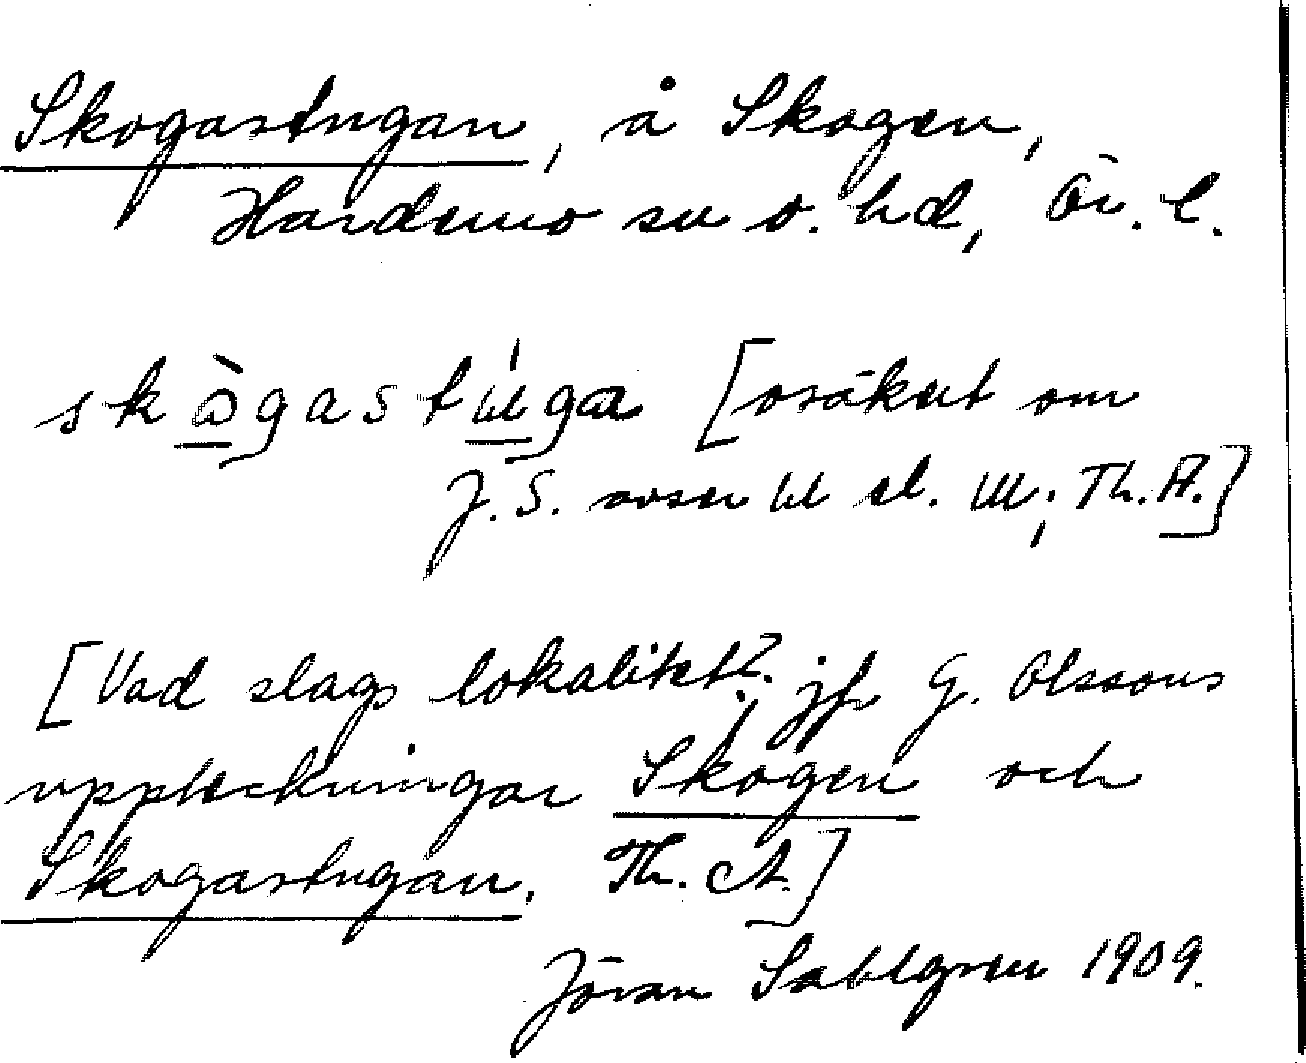 Skogastugan, å Skogen,
Hardemo sn o. hd, Ör. l.
skògastɯ́ga [osäkert om
J.S. avser ɯ el. ɯ; Th. A.]
[Vad slags lokalitet?; jfr G. Olssons
uppteckningar Skogen och
Skogastugan. Th. A.]
Jöran Sahlgren 1909.